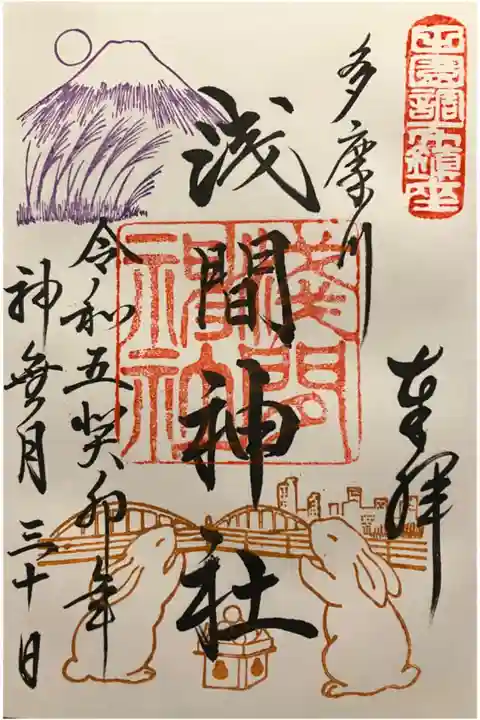 奉拝
多摩川
浅間神社
浅間神社
令和五癸卯年
神無月三十日